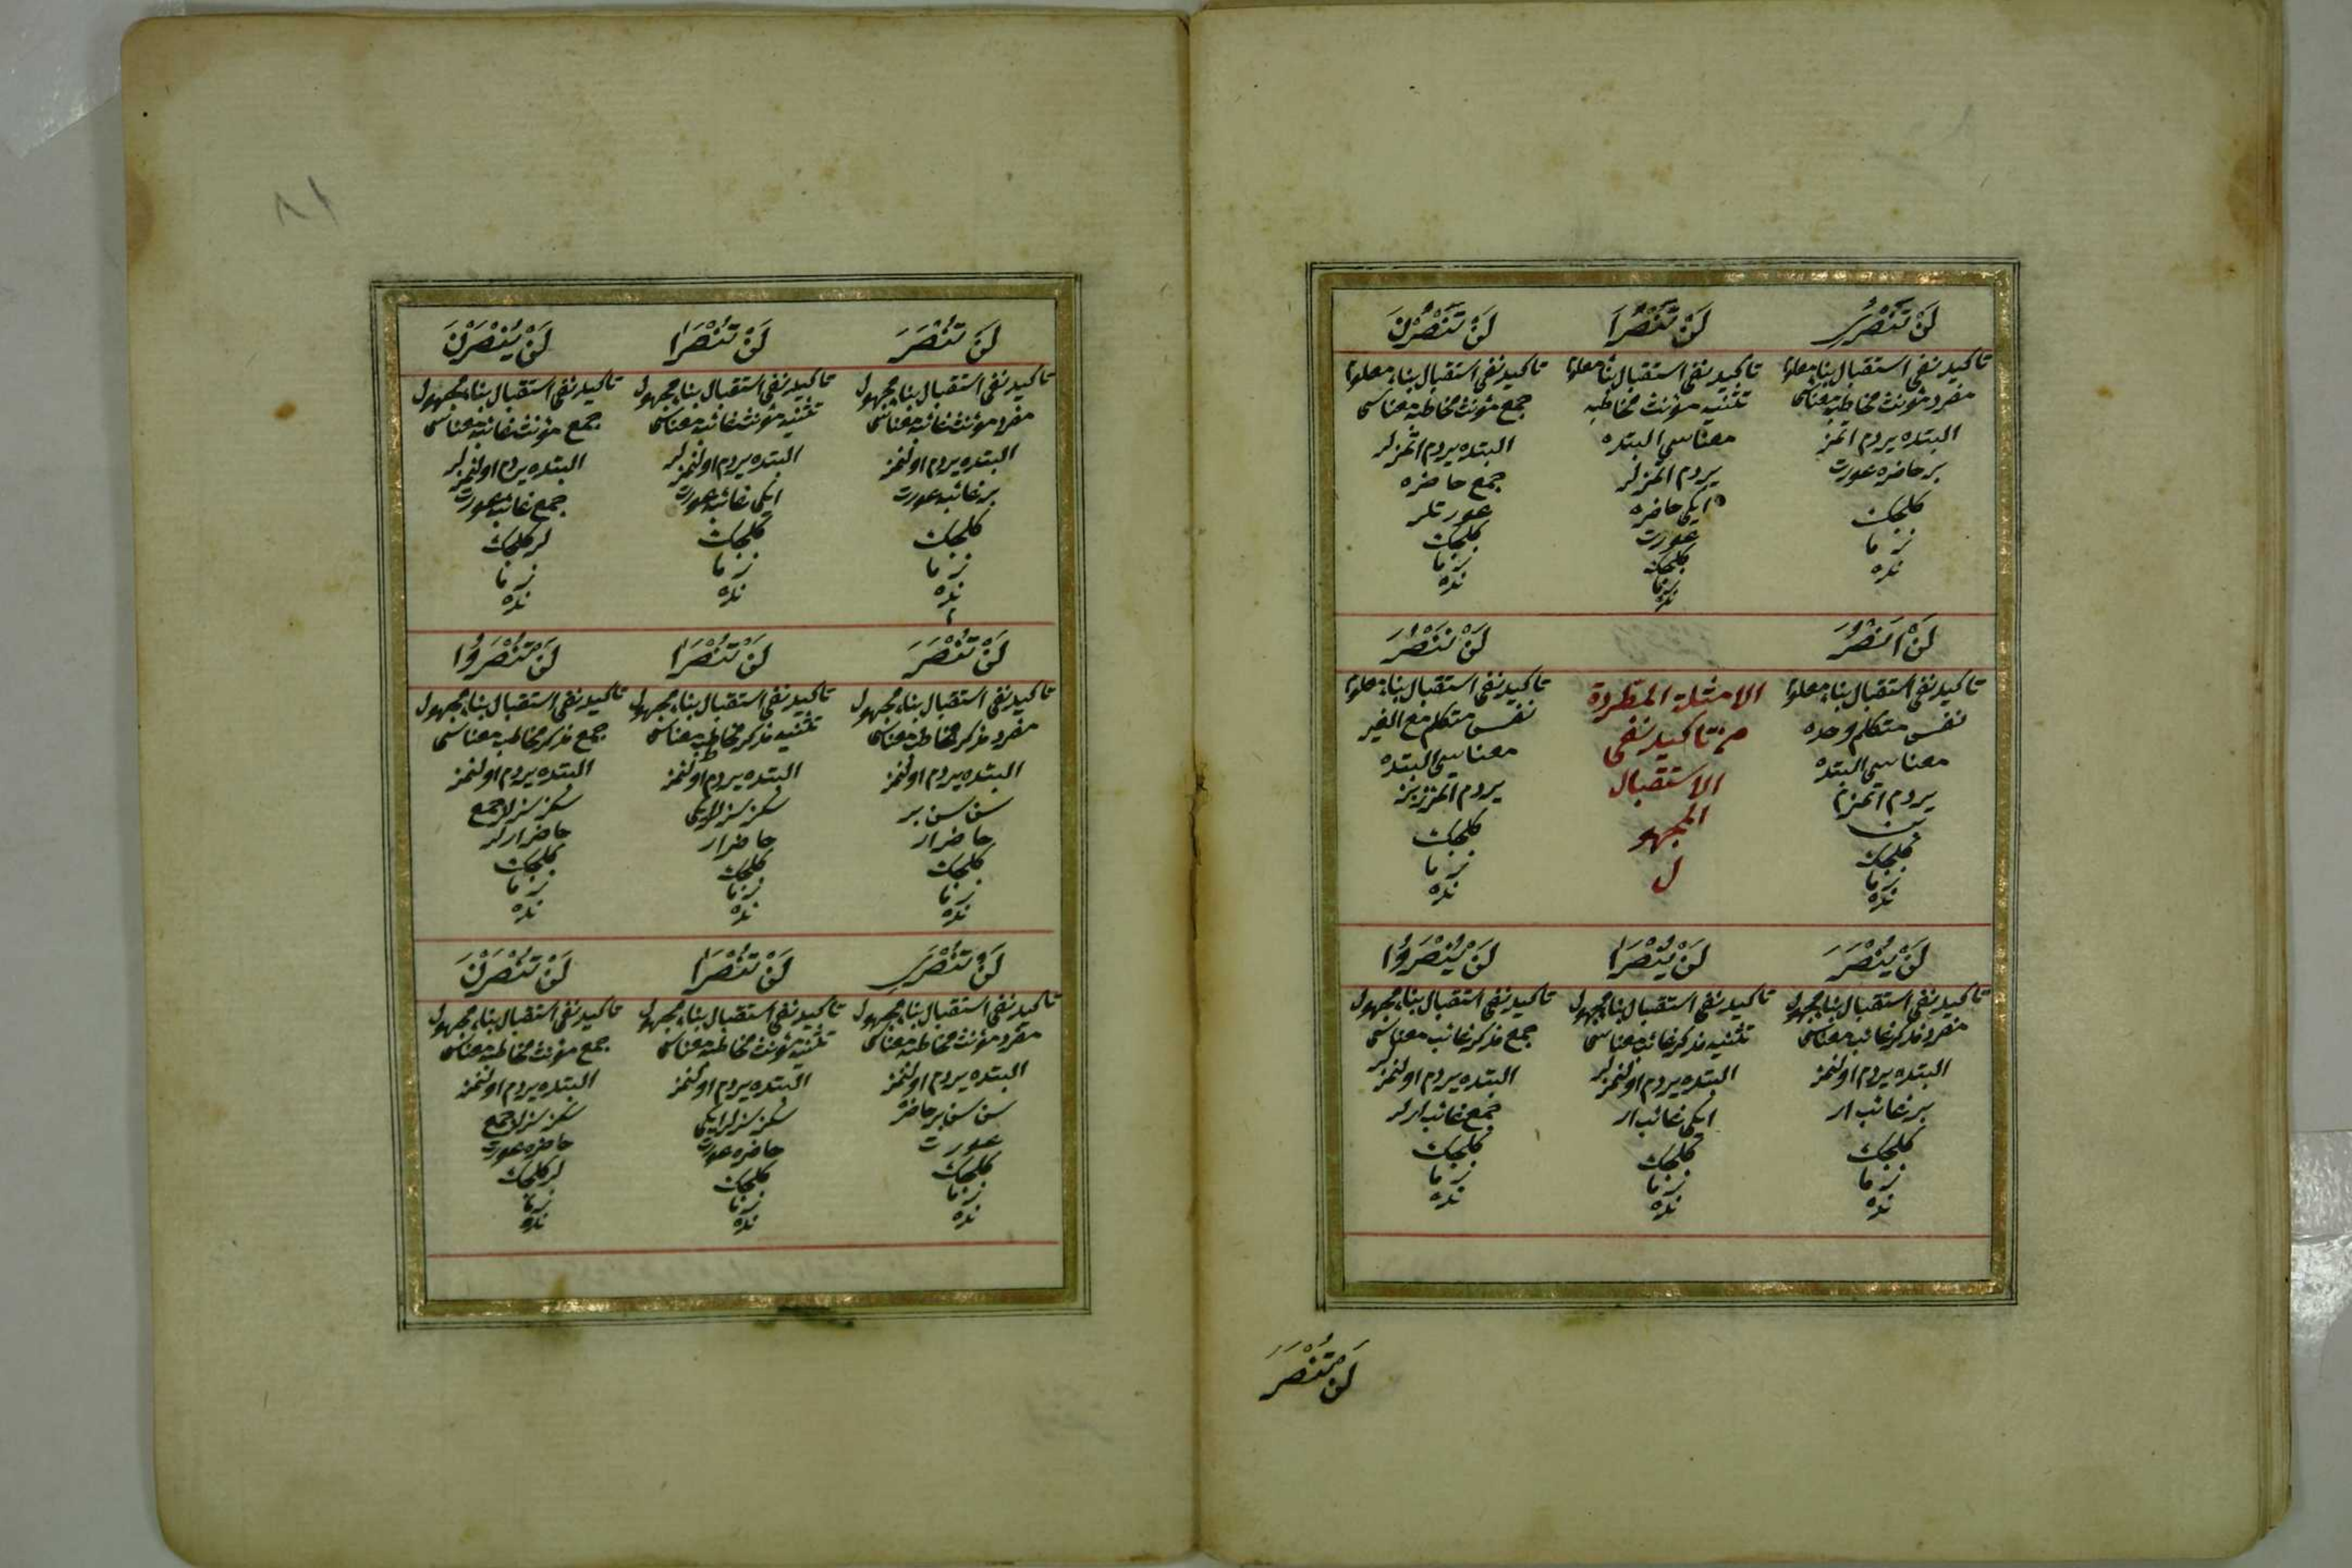 لَنْ تَنْصُرِي
تاكيد نفى استقبال بناء معلوم
مفرد مؤنث مخاطبه معناسى
البتده يردم اتمز
بر حاضره عورت
كلجك
زما
نده
لَنْ تَنْصُرَا
تاكيد نفى استقبال بناء معلوم
تثنيه مؤنث مخاطبه
معناسى البتده
يردم اتمزلر
ايكى حاضره
عورت
كلجك
زما
نده
لَنْ تَنْصُرْنَ
تاكيد نفى استقبال بناء معلوم
جمع مؤنث مخاطبه معناسى
البتده يردم اتمزلر
جمع حاضره
عورتلر
كلجك
زما
نده
لَنْ اَنْصُرَ
تاكيد نفى استقبال بناء معلوم
نفس متكلم وحده
معناسى البتده
يردم اتمزم
بن
كلجك
زما
نده
الامثلة المطردة
من تاكيد نفى
الاستقبال
المجهو
ل
لَنْ نَنْصُرَ
تاكيد نفى استقبال بناء معلوم
نفس متكلم مع الغير
معناسى البتده
يردم اتمزز بز
كلجك
زما
نده
لَنْ يُنْصَرَ
تاكيد نفى استقبال بناء مجهول
مفرد مذكر غائب معناسى
البتده يردم اولنمز
بر غائب ار
كلجك
زما
نده
لَنْ يُنْصَرَا
تاكيد نفى استقبال بناء مجهول
تثنيه مذكر غائب معناسى
البتده يردم اولنمزلر
ايكى غائب ار
كلجك
زما
نده
لَنْ يُنْصَرُوا
تاكيد نفى استقبال بناء مجهول
جمع مذكر غائب معناسى
البتده يردم اولنمزلر
جمع غائب ارلر
كلجك
زما
نده
لَنْ تُنْصَرَ
لَنْ تُنْصَرَ
تاكيد نفى استقبال بناء مجهول
مفرد مؤنث غائبه معناسى
البتده يردم اولنمز
بر غائبه عورت
كلجك
زما
نده
لَنْ تُنْصَرَا
تاكيد نفى استقبال بناء مجهول
تثنيه مؤنث غائبه معناسى
البتده يردم اولنمزلر
ايكى غائبه عورت
كلجك
زما
نده
لَنْ يُنْصَرْنَ
تاكيد نفى استقبال بناء مجهول
جمع مؤنث غائبه معناسى
البتده يردم اولنمزلر
جمع غائبه عورت
لر كلجك
زما
نده
لَنْ تُنْصَرَ
تاكيد نفى استقبال بناء مجهول
مفرد مذكر مخاطب معناسى
البتده يردم اولنمز
سن سن بر
حاضر ار
كلجك
زما
نده
لَنْ تُنْصَرَا
تاكيد نفى استقبال بناء مجهول
تثنيه مذكر مخاطب معناسى
البتده يردم اولنمز
سكز سزلر ايكى
حاضر ار
كلجك
زما
نده
لَنْ تُنْصَرُوا
تاكيد نفى استقبال بناء مجهول
جمع مذكر مخاطب معناسى
البتده يردم اولنمز
سكز سزلر جمع
حاضر ارلر
كلجك
زما
نده
لَنْ تُنْصَرِي
تاكيد نفى استقبال بناء مجهول
مفرد مؤنث مخاطبه معناسى
البتده يردم اولنمز
سن سن بر حاضره
عورت
كلجك
زما
نده
لَنْ تُنْصَرَا
تاكيد نفى استقبال بناء مجهول
تثنيه مؤنث مخاطبه معناسى
البتده يردم اولنمز
سكز سزلر ايكى
حاضره عورت
كلجك
زما
نده
لَنْ تُنْصَرْنَ
تاكيد نفى استقبال بناء مجهول
جمع مؤنث مخاطبه معناسى
البتده يردم اولنمز
سكز سزلر جمع
حاضره عورت
لر كلجك
زما
نده